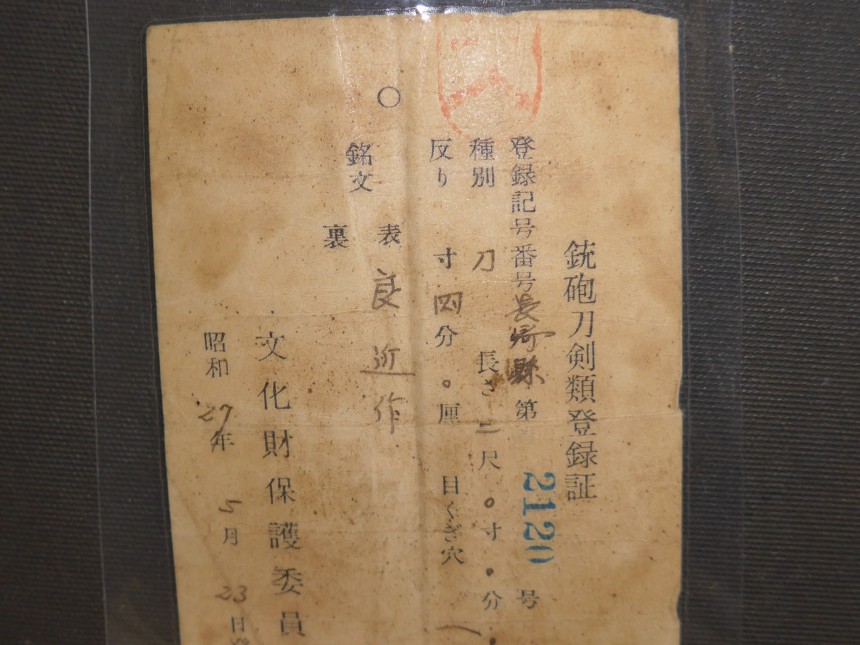 銃砲刀剣類登録証
登録記号番号長崎縣第2120号
種別 刀 長さ 二尺〇寸 分
反り 寸四分〇厘 目くぎ穴
銘文 表 良近作
裏
文化財保護委員
昭和27年5月23日